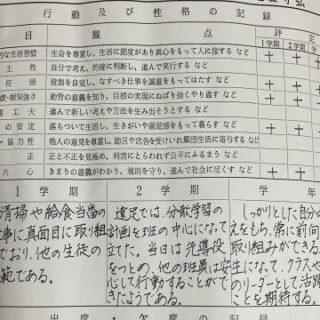 行動及び性格の記録
目 観点 評定
1学期 2学期 学
的な生活習慣 生命を尊重し、生活に節度があり真心をもって人に接するなど + +
主性 自分で考え、的確に判断し、進んで実行するなど +
任感 役割を自覚し、なすべき仕事を誠意をもってはたすなど + +
根気強さ 勤労の意義を知り、目標の実現にねばり強くやり通すなど + +
工夫 進んで新しい考えや方法を生み出そうとするなど
の安定 落ちついて生活し、生きがいや満足感をもって暮らすなど + +
・協力性 他人の意見を尊重し、助言や忠告を受けいれ集団生活に寄与するなど
正 正と不正を見極め、利害にとらわれず公平にふるまうなど
共心 きまりの意義がわかり、規則を守り、進んで社会に尽くすなど + +
1学期 2学期 学年
清掃や給食当番の
事に真面目に取り組
ており、他の生徒の
範である。
遠足では、分散学習の
計画を班の中心になって
立てた。当日は先導役
をつとめ、他の班員は安
心して行動することがで
きたようである。
しっかりとした自分の
えをもち、常に前向
取り組みができる。
生になって、クラスや
のリーダーとして活躍
ことを期待する。